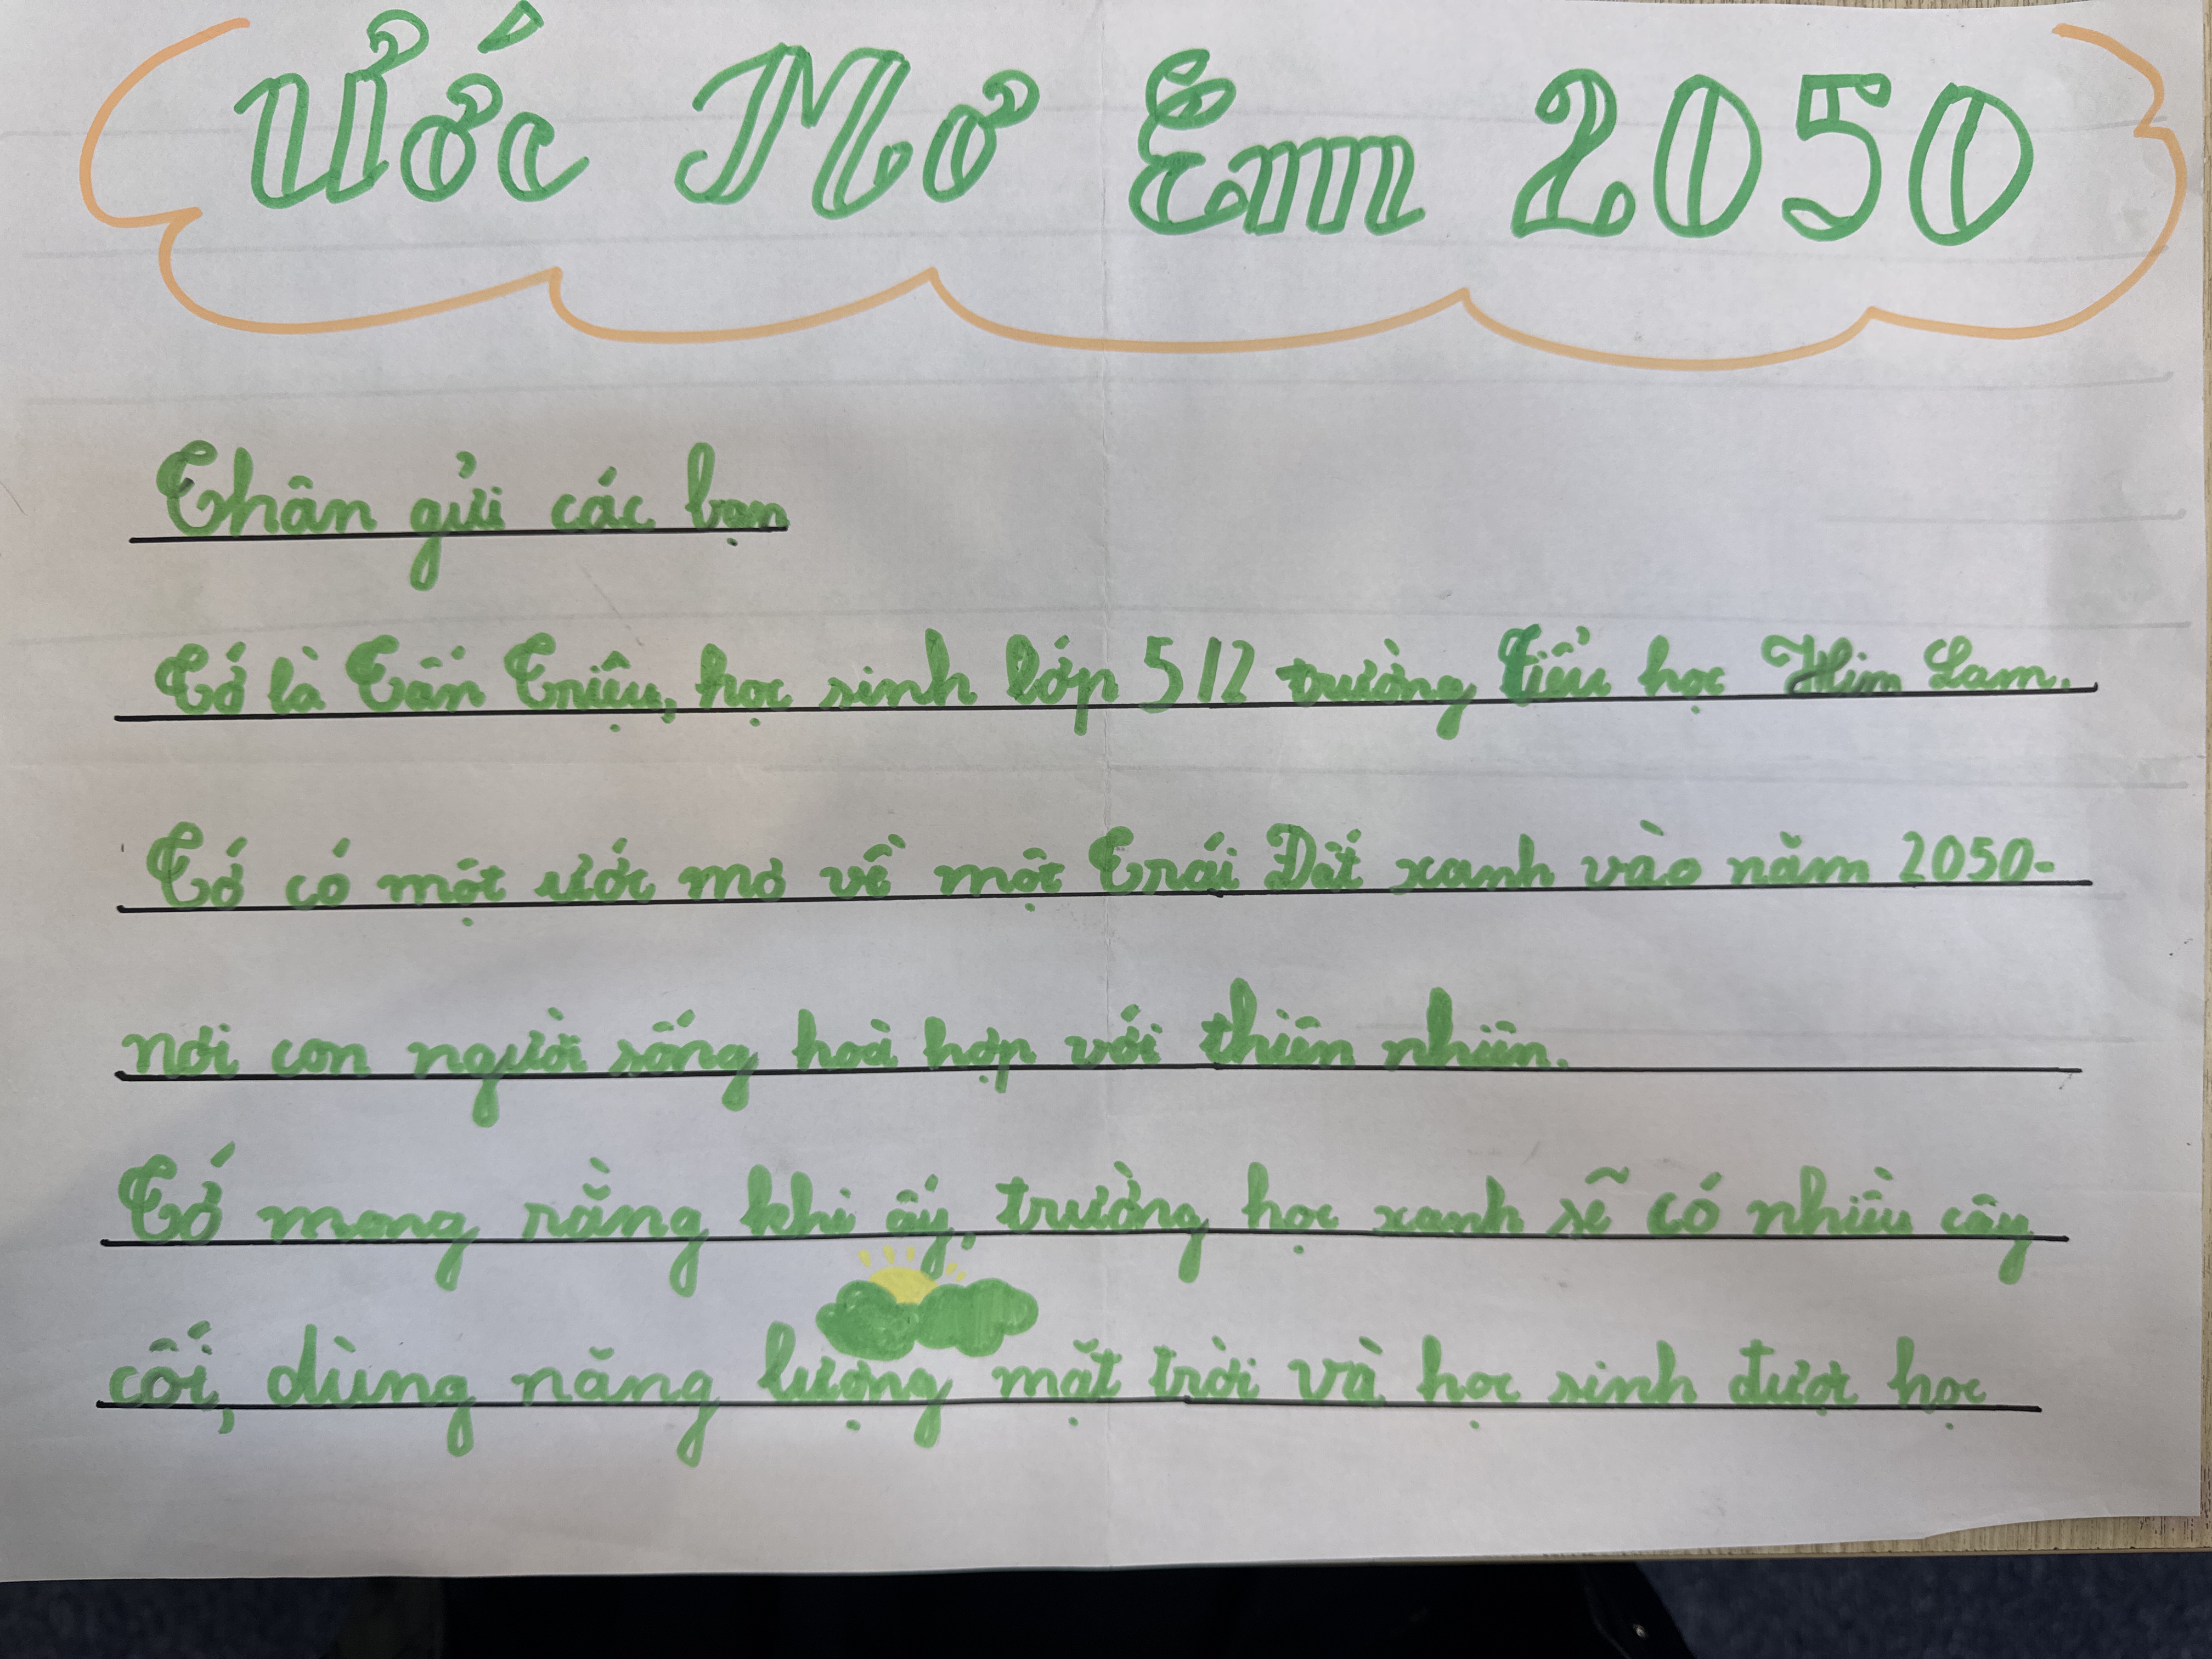 Ước Mơ Em 2050
Thân gửi các bạn
Tớ là Tấn Triệu, học sinh lớp 5/2 trường Tiểu học Him Lam.
Tớ có một ước mơ về một Trái Đất xanh vào năm 2050-
nơi con người sống hoà hợp với thiên nhiên.
Tớ mong rằng khi ấy, trường học xanh sẽ có nhiều cây
cối, dùng năng lượng mặt trời và học sinh được học